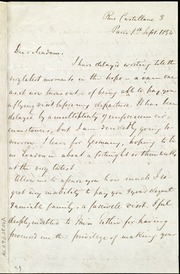 Rue Castellane 3
Paris 1st Sept. 1854
Dear Madam,
I have delayed writing till the
very last moments in the hope - a vain one
and now renounced of being able to pay you
a flying visit before my departure. I have been
delayed by a multiplicity of unforeseen cir-
cumstances, but I am decidedly going to-
morrow. I leave for Germany, hoping to be
in London in about a fortnight or three weeks
at the very latest.
Allow me to assure you how much I re-
gret my inability to pay you & your elegant
& amiable family, a farewell visit. I feel
deeply indebted to Miss for having
procured me the privilege of making your